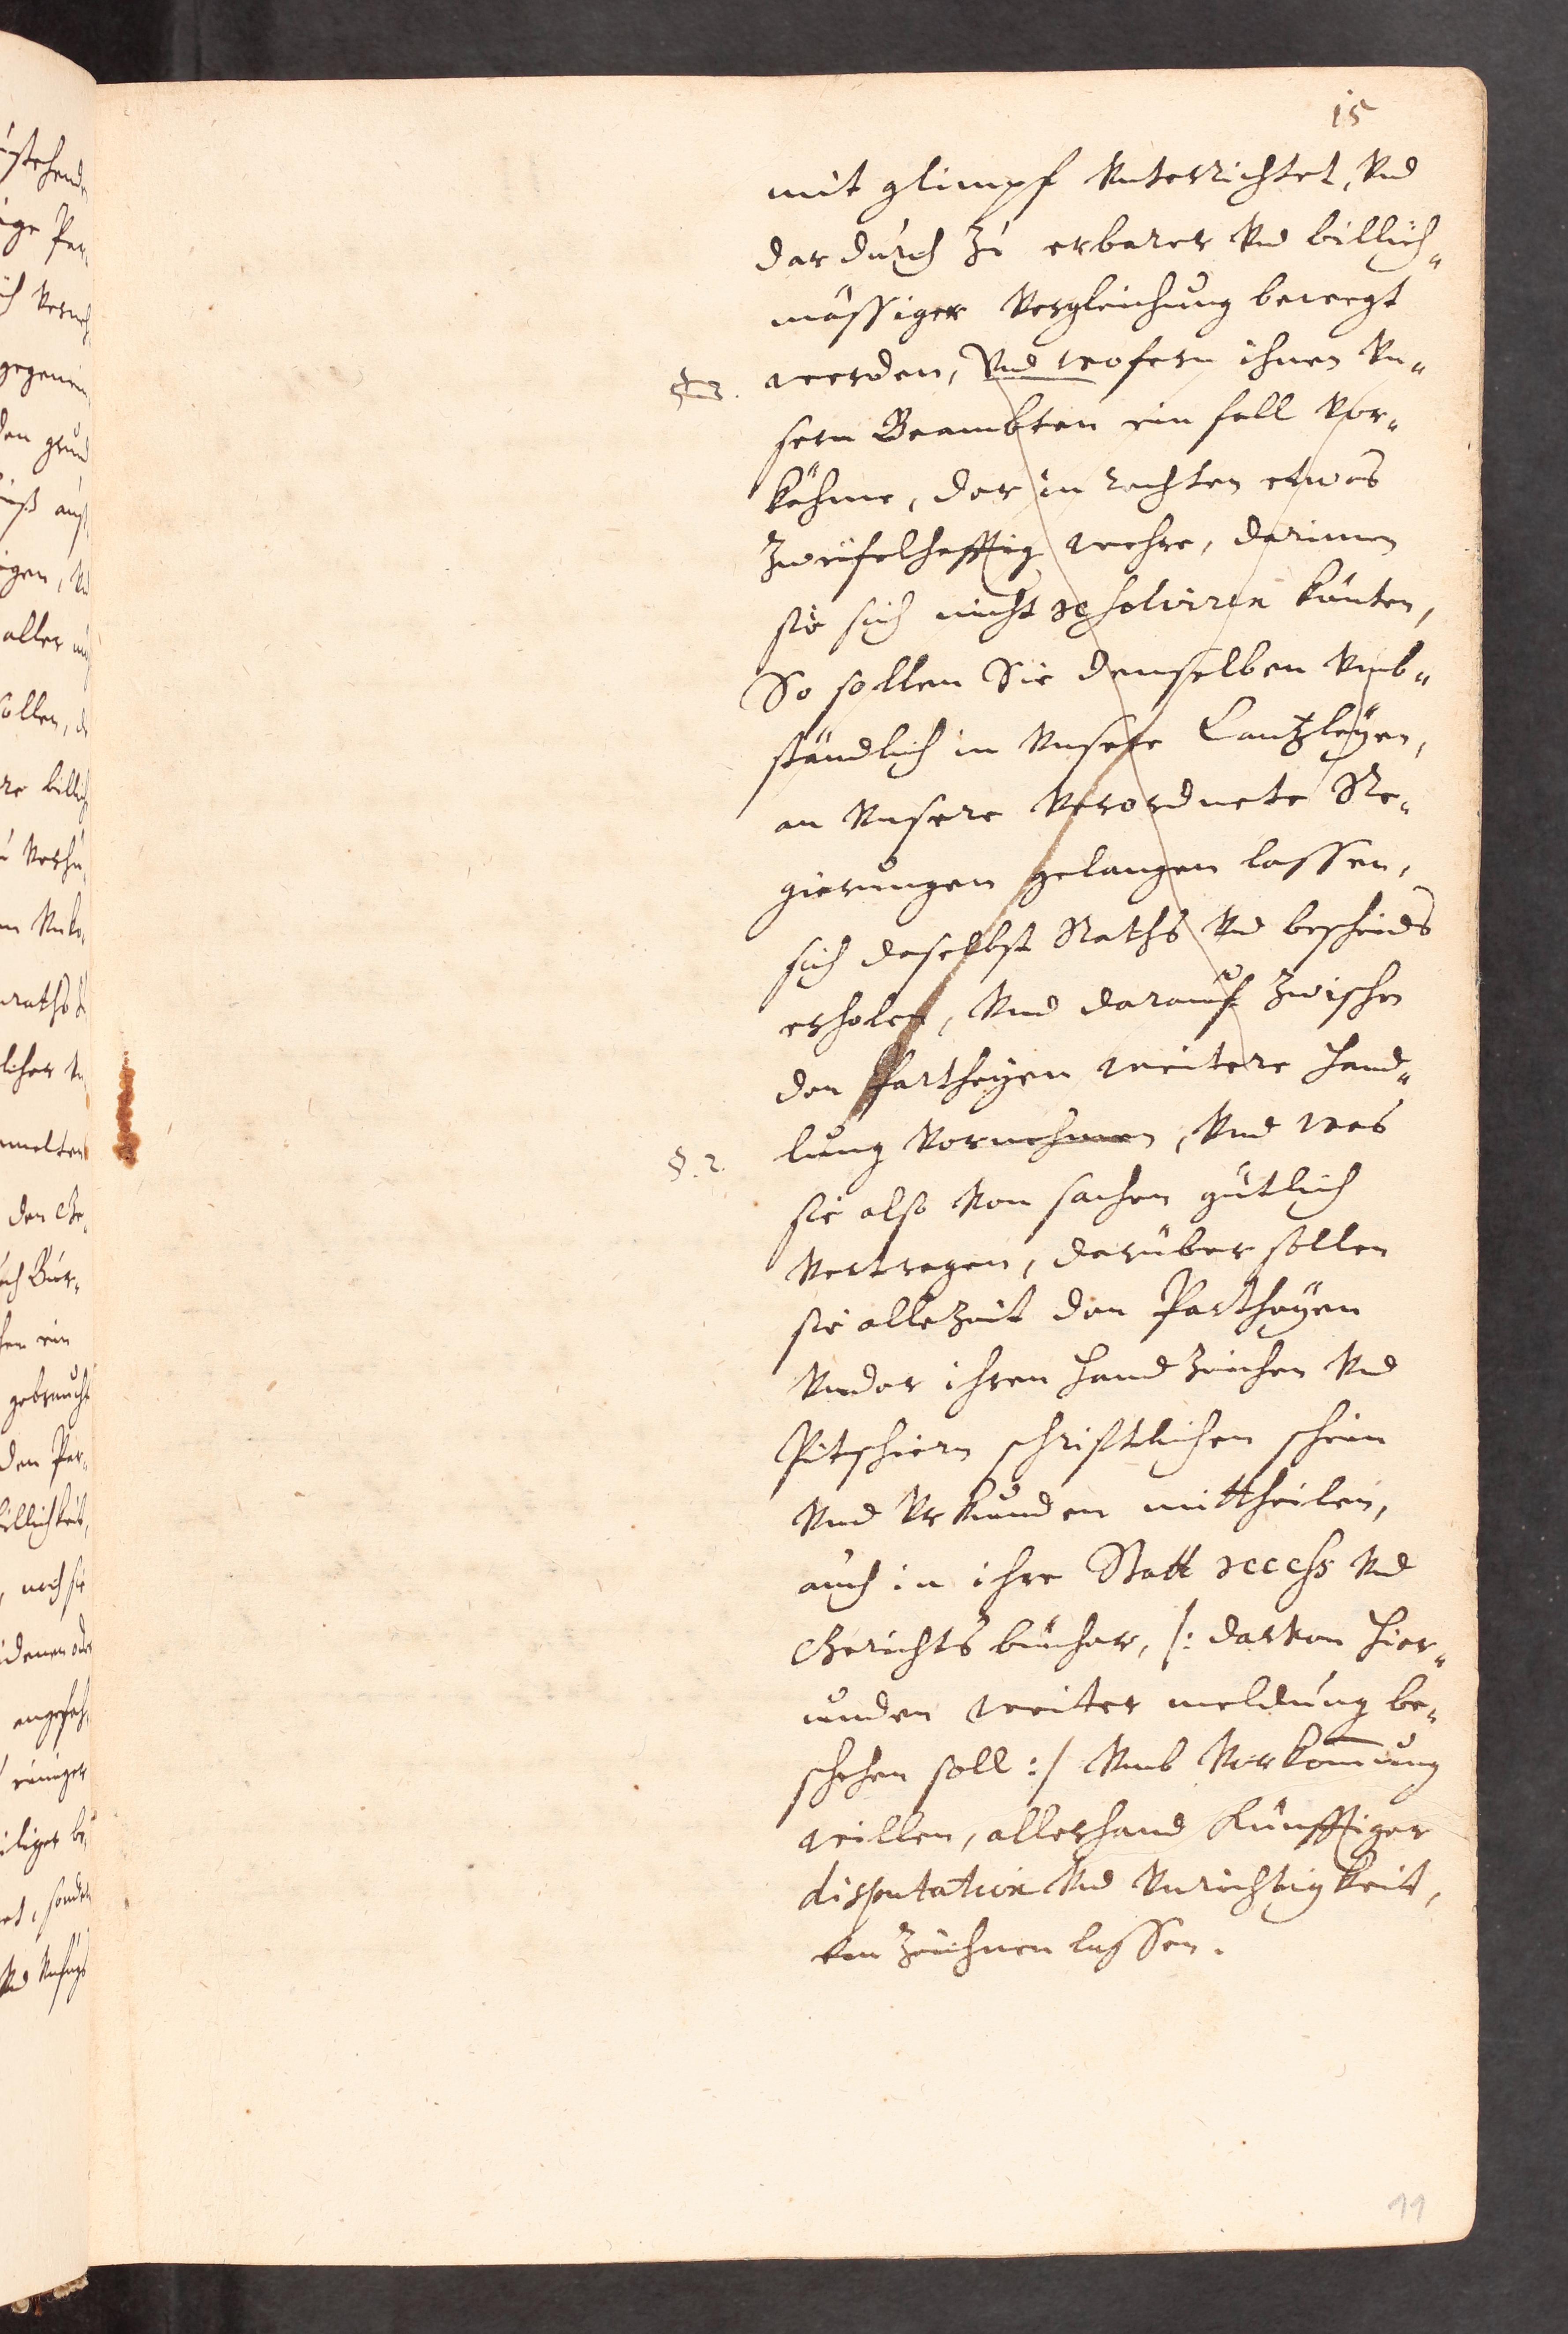 15
mit glimpf vnterrichtet, vnd
dardurch zu erbarer vnd billich„
mässiger vergleichung bewegt
§ 2. werden, vnd wofern ihnen vn„
sern Beambten ein fall vor„
kähme, der in rechten etwas
zweifelhafftig wehre, darinnen
sie sich nicht resolviren könten,
So sollen Sie denselben vmb„
ständlich in vnsere Cantzleÿen,
an vnsere verordnete Re„
gierungen gelangen lassen,
sich daselbst Raths vnd bescheids
erholen, vnd darauf zwischen
den Partheÿen weitere hand„
§. 2. lung vornehmen, vnd was
sie also von sachen gütlich
vertragen, darüber sollen
sie allezeit den Partheÿen
vnder ihren handzeichen vnd
Pitschiern schrifftlichen schein
vnd vrkunden mittheilen,
auch in ihre Statt recess vnd
Gerichts bücher, /: darvon hier„
unden weiter meldung be„
schehen soll :/ vmb vorkom̄ung
willen, allerhand künfftiger
disputation vnd vnrichtigkeit,
ein zeichnen lassen.
11